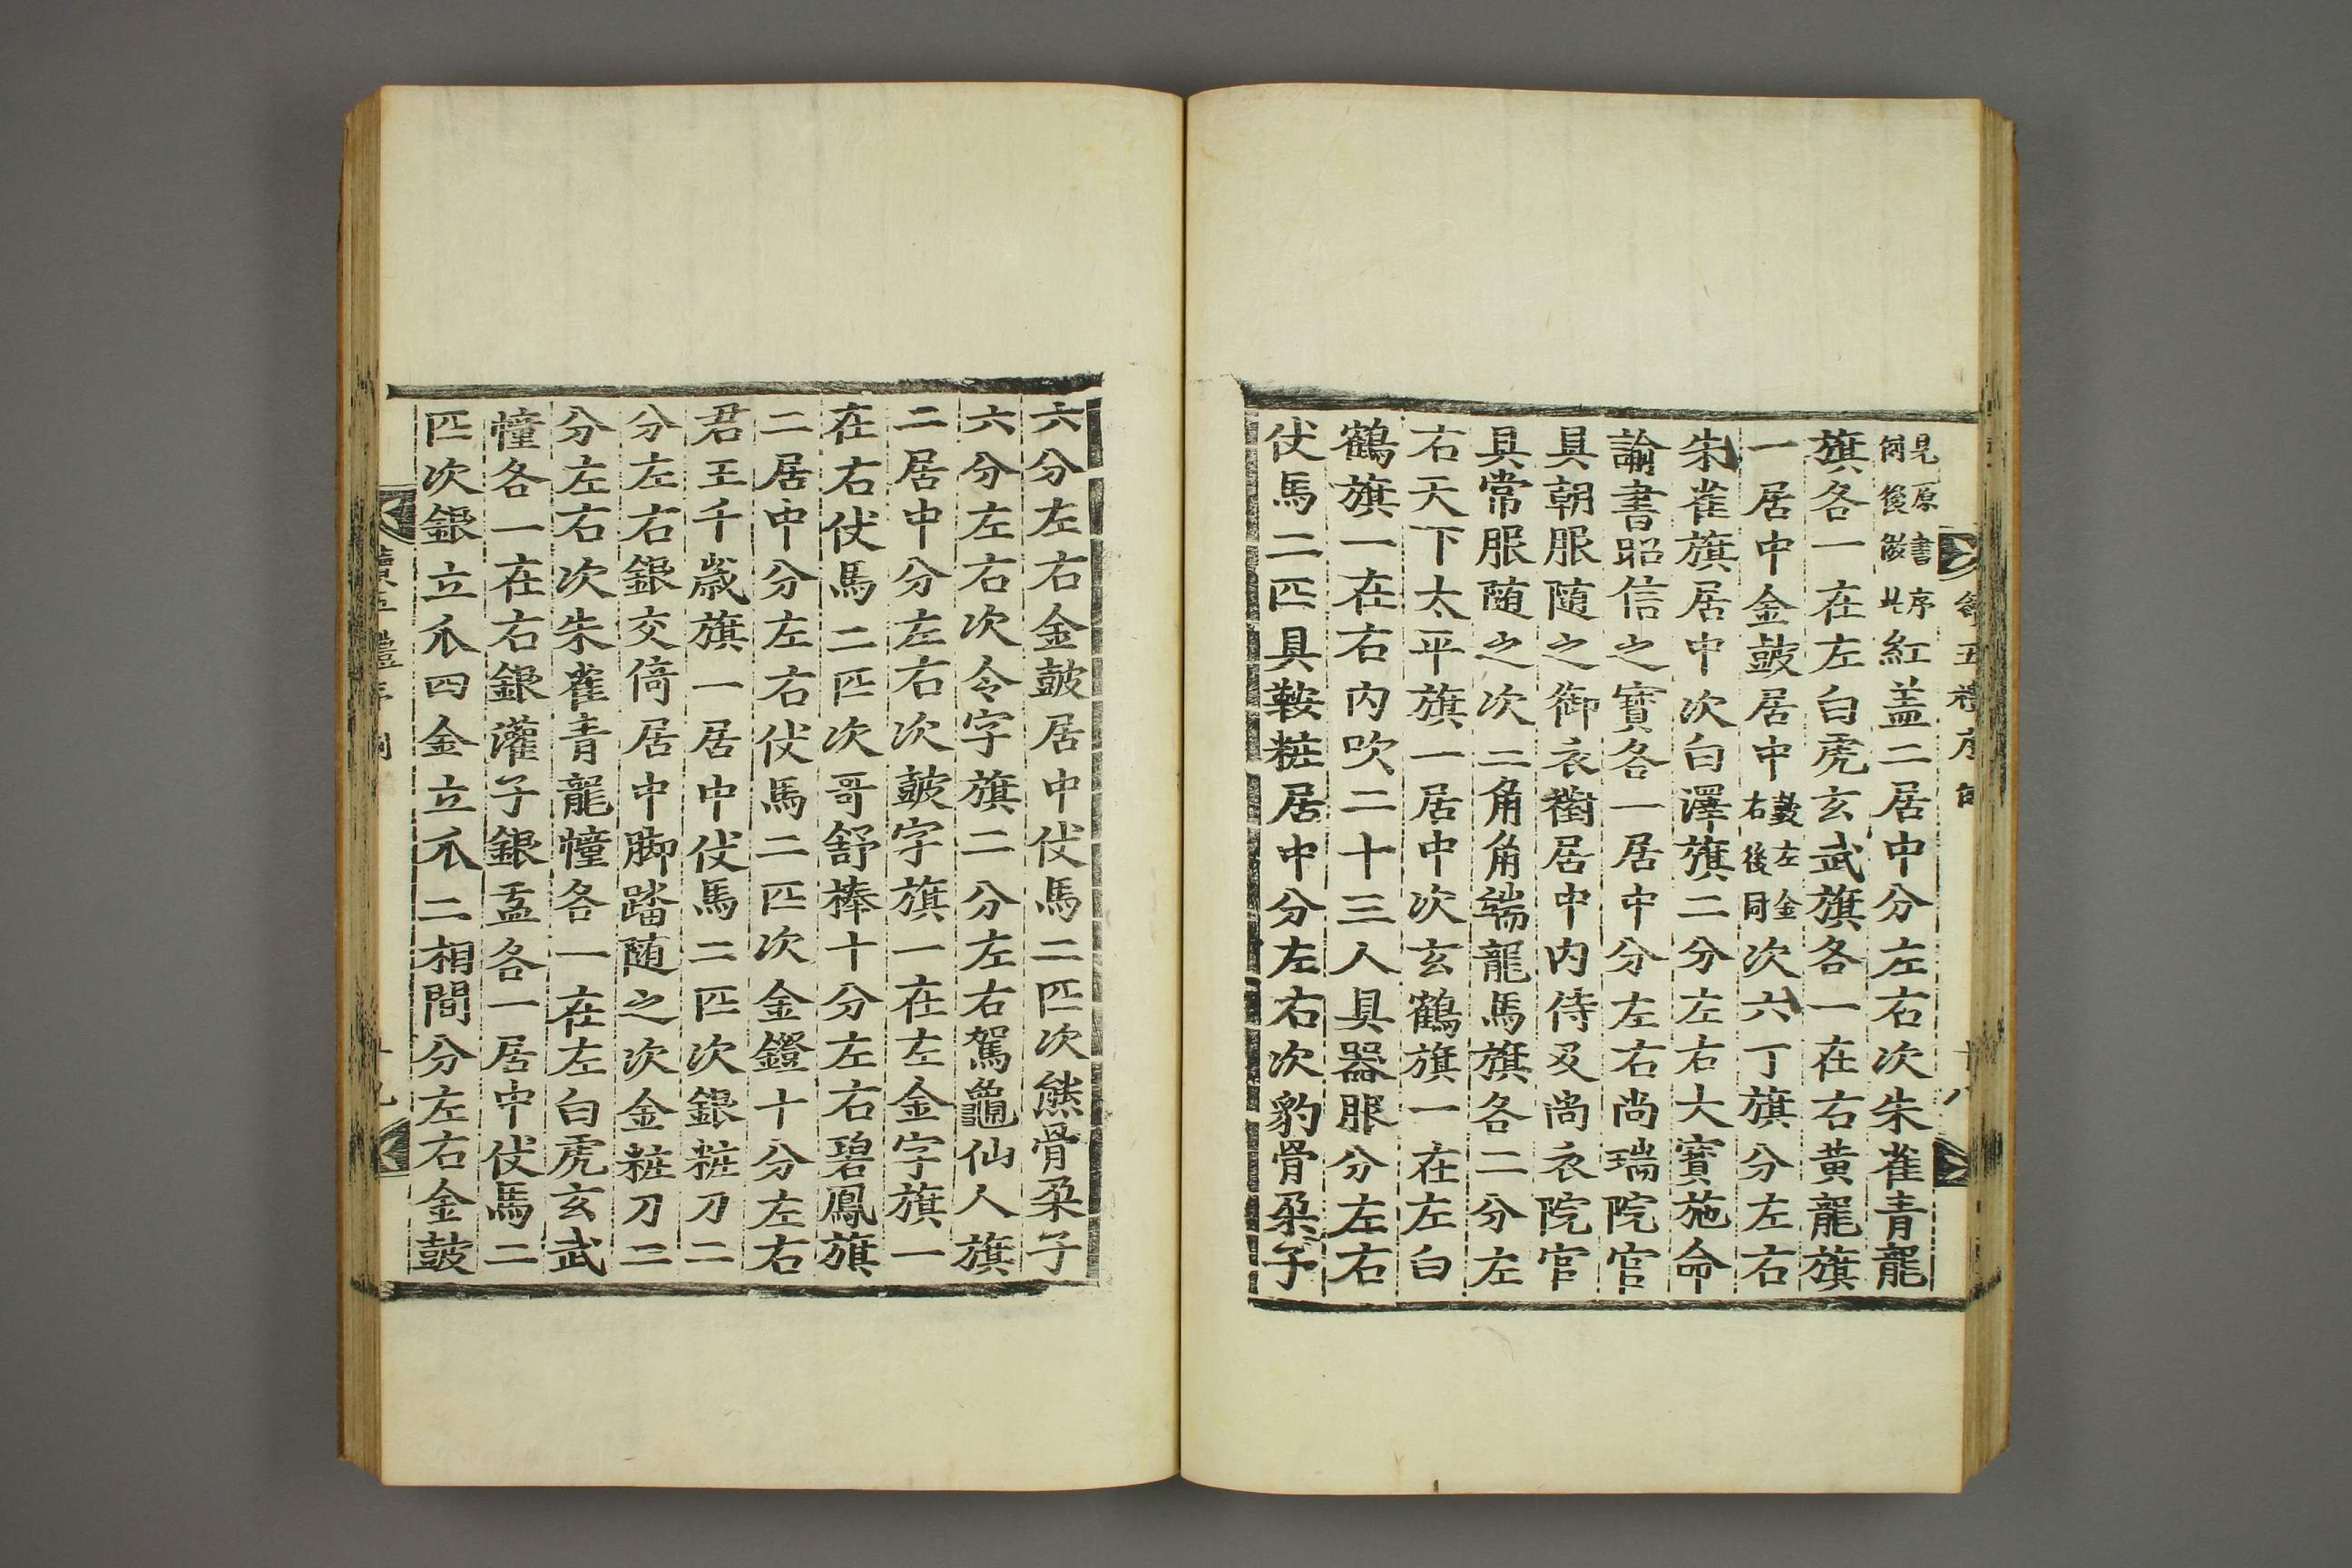 見原書序
例後倣此
紅盖二居中分左右次朱雀青龍
旗各一在左白虎玄武旗各一在右黄龍旗
一居中金鼓居中
鼓左金
右後同
次六丁旗分左右
朱雀旗居中次白澤旗二分左右大寶施命
諭書昭信之寶各一居中分左右尚瑞院官
具朝服随之御衣襨居中内侍及尚衣院官
具常服随之次三角角端龍馬旗各二分左
右天下太平旗一居中次玄鶴旗一在左白
鶴旗一在右内吹二十三人具器服分左右
仗馬二匹具鞍粧居中分左右次豹骨朶子
六分左右金鼓居中仗馬二匹次熊骨朶子
六分左右次令字旗二分左右駕龜仙人旗
二居中分左右次鼓字旗一在左金字旗一
在右仗馬二匹次哥舒捧十分左右碧鳳旗
二居中分左右仗馬二匹次金鐙十分左右
君王千歲旗一居中仗馬二匹次銀粧刀二
分左右銀交倚居中脚踏随之次金粧刀二
分左右次朱雀青龍幢各一在左白虎玄武
幢各一在右銀灌子銀盂各一居中仗馬二
匹次銀立爪四金立爪二相間分左右金鼓